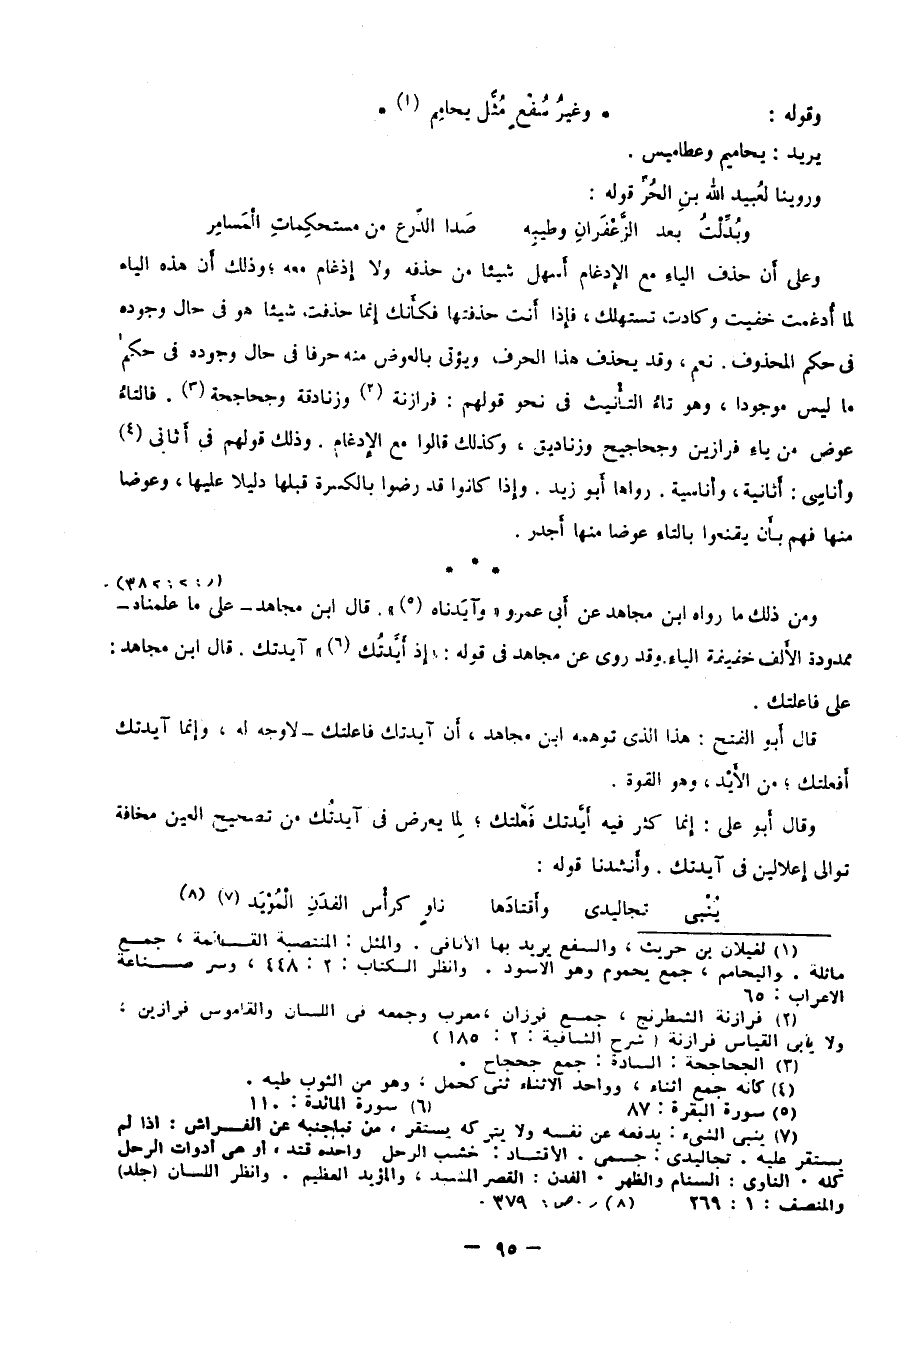 وقوله : * وغيرُ سُفْعٍ مُثَّل يحامِم (١) *
يريد : يحاميم وعطاميس .
وروينا لعُبيد الله بنِ الحُرِّ قوله :
وبُدِّلْتُ بعد الزَّعْفَرانِ وطيبِه صَدا الدِّرع من مستحكِماتِ الْمَسامِر
وعلى أن حذف الياء مع الإدغام أسهل شيئا من حذفه ولا إدغام معه ؛ وذلك أن هذه الياء
لما أُدغمت خفيت وكادت تستهلك ، فإذا أنت حذفتها فكأنك إنما حذفت شيئا هو فى حال وجوده
فى حكم المحذوف . نعم ، وقد يحذف هذا الحرف ويؤتى بالعوض منه حرفا فى حال وجوده فى حكم
ما ليس موجودا ، وهو تاءُ التأنيث فى نحو قولهم : فرازنة (٢) وزنادقة وجحاجحة (٣) . فالتاءُ
عوض من ياء فرازين وجحاجيح وزناديق ، وكذلك قالوا مع الإدغام . وذلك قولهم فى أثانى (٤)
وأناسى : أثانية ، وأناسية . رواها أبو زيد . وإذا كانوا قد رضوا بالكسرة قبلها دليلا عليها ، وعوضا
منها فهم بأن يقنعوا بالتاء عوضا منها أجدر .
* * *
ومن ذلك ما رواه ابن مجاهد عن أبى عمرو « وآيَدْناه (٥) » . قال ابن مجاهد – على ما علمناه –
ممدودة الألف خفيفة الياء . وقد روى عن مجاهد فى قوله : « إذ أَيَّدتُك (٦) » آيدتك . قال ابن مجاهد :
على فاعلتك .
قال أبو الفتح : هذا الذى توهمه ابن مجاهد ، أن آيدتك فاعلتك – لا وجه له ، وإنما آيدتك
أفعلتك ؛ من الأَيْد ، وهو القوة .
وقال أبو على : إنما كثر فيه أيَّدتك فَعَّلتك ؛ لِما يعرض فى آيدتُك من تصحيح العين مخافة
توالى إعلالين فى آيدتك . وأنشدنا قوله :
يُنْبِى تجاليدى وأَقتادَها ناوٍ كرأْس الفدَنِ الْمُؤْيَد (٧) (٨)
(١) لغيلان بن حريث ، والسفع يريد بها الأثافى . والمثل : المنتصبة القائمة ، جمع
ماثلة . واليحامم ، جمع يحموم وهو الأسود . وانظر الكتاب : ٢ : ٤٤٨ ، وسر صناعة
الاعراب : ٦٥
(٢) فرازنة الشطرنج ، جمع فرزان ، معرب وجمعه فى اللسان والقاموس فرازين ؛
ولا يأبى القياس فرازنة ( شرح الشافية : ٢ : ١٨٥ )
(٣) الجحاجحة : السادة : جمع جحجاح .
(٤) كأنه جمع أثناء ، وواحد الاثناء ثنى كحمل ، وهو من الثوب طيه .
(٥) سورة البقرة : ٨٧ (٦) سورة المائدة : ١١٠
(٧) ينبى الشىء : يدفعه عن نفسه ولا يتركه يستقر ، من نبا جنبه عن الفراش : اذا لم
يستقر عليه . تجاليدى : جسمى . الأقتاد : خشب الرحل واحده قتد ، أو هى أدوات الرحل
كله . الناوى : السنام والظهر . الفدن : القصر المشيد ، والمؤيد العظيم . وانظر اللسان (جلد)
والمنصف : ١ : ٢٦٩ (٨)
– ٩٥ –